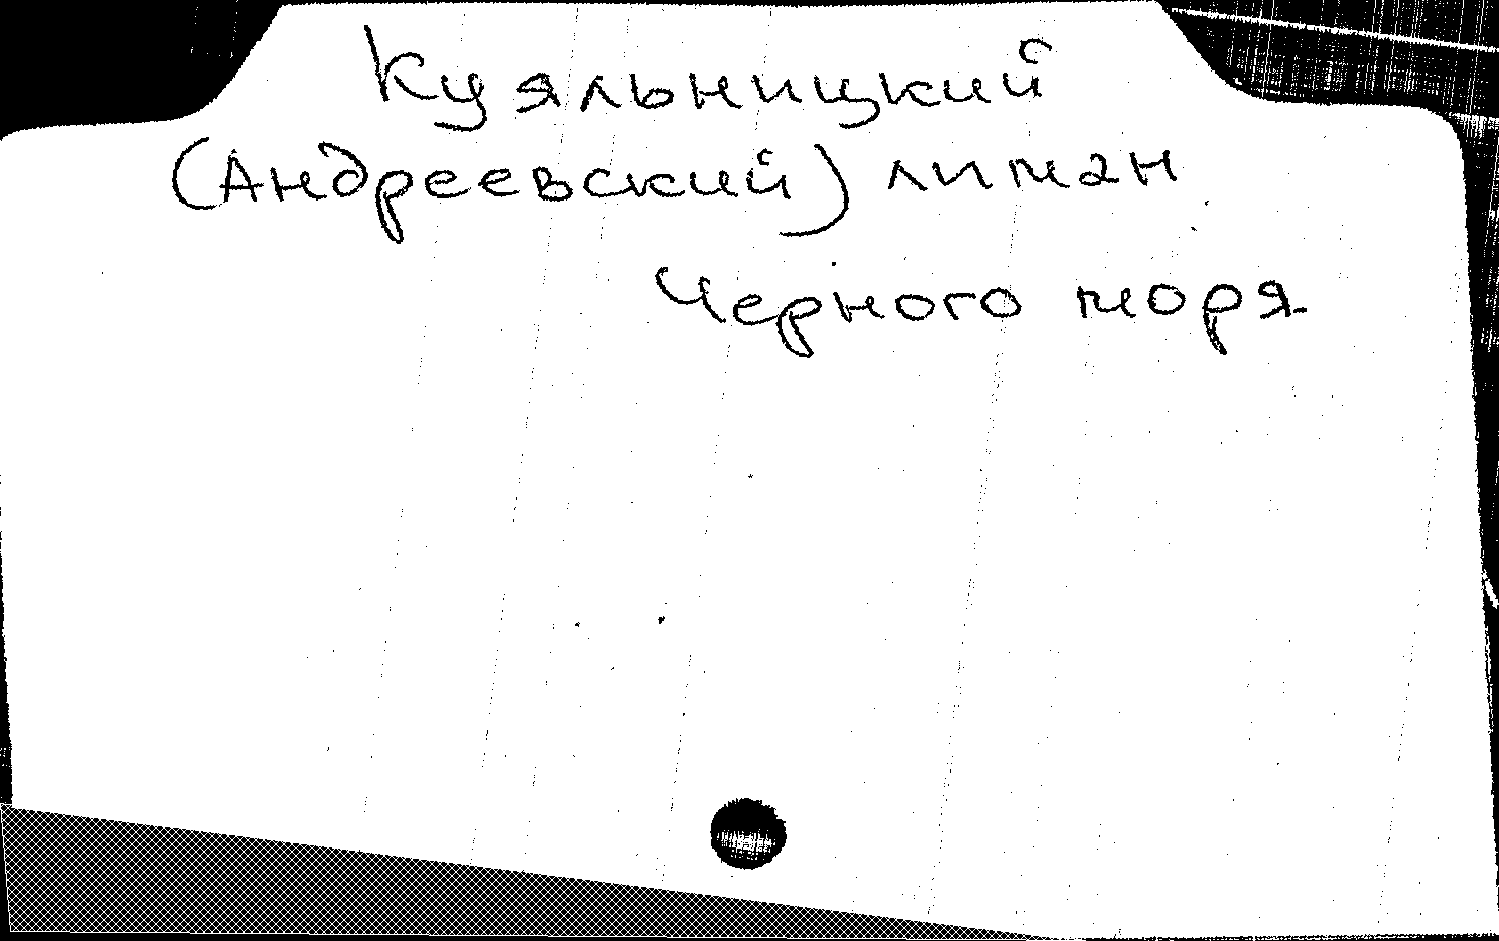 Куяльницкий
(Андреевский) лиман
Черного моря